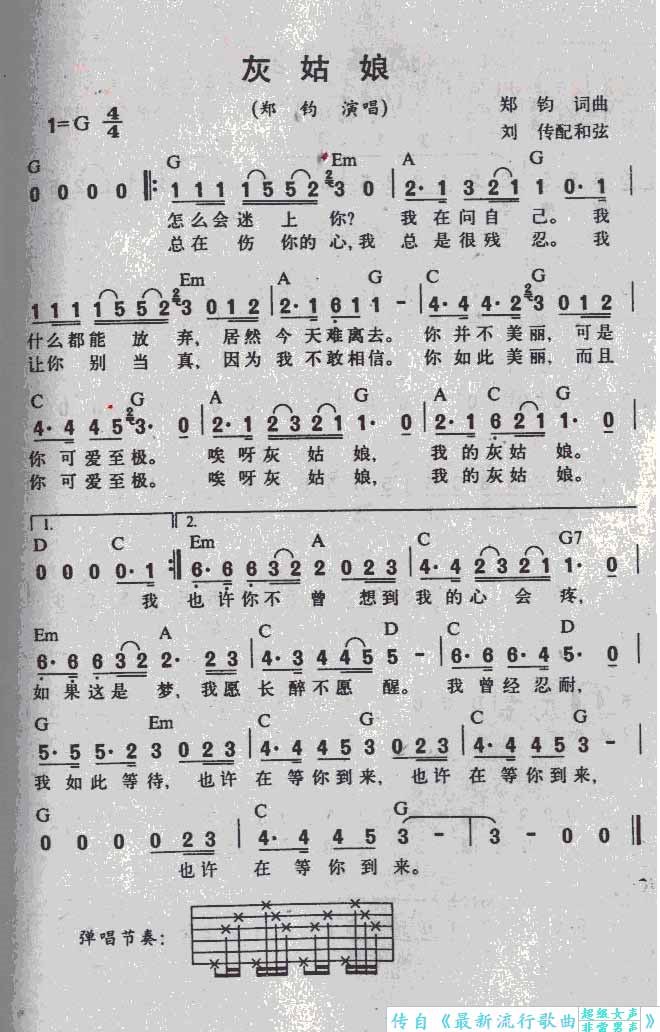 灰 姑 娘
(郑 钧 演唱)
郑 钧 词曲
1=G 4/4
刘 传配和弦
G G Em A G
0 0 0 0 𝄆 1 1 1 1 5 5 2 3 0 | 2· 1 3 2 1 1 0· 1 |
怎么会迷 上 你? 我 在 问 自 己。 我
总 在 伤 你的 心,我 总 是 很 残 忍。 我
Em A G C G
1 1 1 1 5 5 2 3 0 1 2 | 2· 1 6 1 1 - | 4· 4 4· 2 3 0 1 2 |
什么都能 放 弃, 居然 今 天难离去。 你 并不 美丽, 可是
让你 别 当 真, 因为 我 不敢相信。 你 如此 美丽, 而且
C G A G A C G
4· 4 4 5 3· 0 | 2· 1 2 3 2 1 1· 0 | 2· 1 6 2 1 1· 0 |
你 可 爱至极。 唉 呀灰 姑 娘, 我 的 灰 姑 娘。
你 可 爱至极。 唉 呀灰 姑 娘, 我 的 灰 姑 娘。
1. 2.
D C Em A C G7
0 0 0 0· 1 𝄇 6· 6 6 3 2 2 0 2 3 | 4· 4 2 3 2 1 1· 0 |
我 也 许你不 曾 想到 我 的心 会 疼,
Em A C D C D
6· 6 6 3 2 2· 2 | 4· 3 4 4 5 5 - | 6· 6 6· 4 5· 0 |
如 果 这是 梦, 我 愿 长 醉不愿 醒。 我 曾经 忍耐,
G Em C G C G
5· 5 5· 2 3 0 2 3 | 4· 4 4 5 3 0 2 3 | 4· 4 4 5 3 - |
我 如此 等待, 也许 在 等你到来, 也许 在 等你到来,
G C G
0 0 0 0 2 3 | 4· 4 4 5 3 - | 3 - 0 0 ‖
也许 在 等你到 来。
弹唱节奏:
传自《最新流行歌曲 超级女声 非常男声》